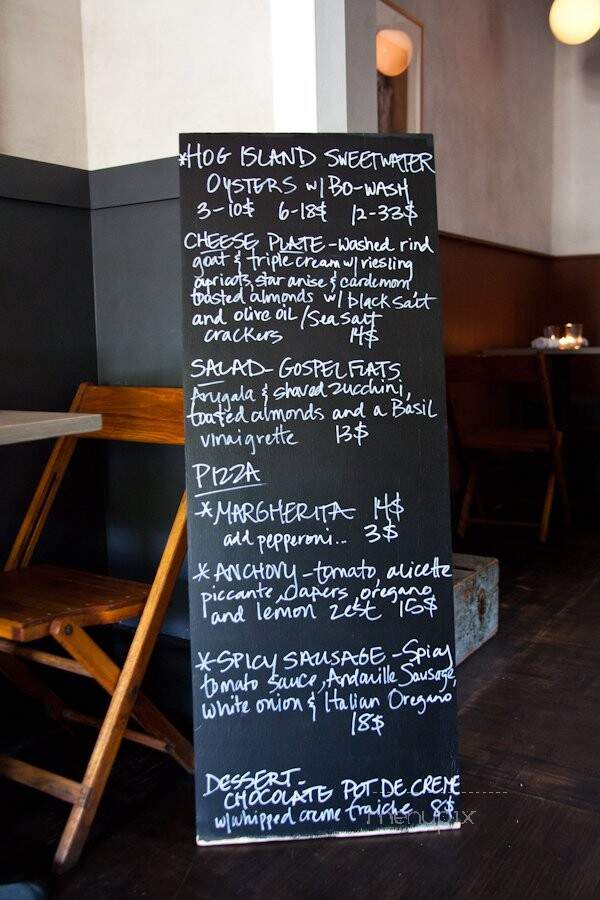 *HOG ISLAND SWEETWATER
OYSTERS w/ BO-WASH
3-10$ 6-18$ 12-33$
CHEESE PLATE - washed rind
goat & triple cream w/ riesling
apricots, star anise & cardemom
toasted almonds w/ black salt
and olive oil / Sea Salt
crackers 14$
SALAD - GOSPEL FLATS
Arugala & shaved zucchini,
toasted almonds and a Basil
vinaigrette 13$
PIZZA
*MARGHERITA 14$
add pepperoni... 3$
*ANCHOVY - tomato, alicette
piccante, capers, oregano
and lemon zest 15$
*SPICY SAUSAGE - Spicy
tomato sauce, Andouille Sausage,
white onion & Italian Oregano
18$
DESSERT-
CHOCOLATE POT DE CREME
w/ whipped creme fraiche 8$
menupix